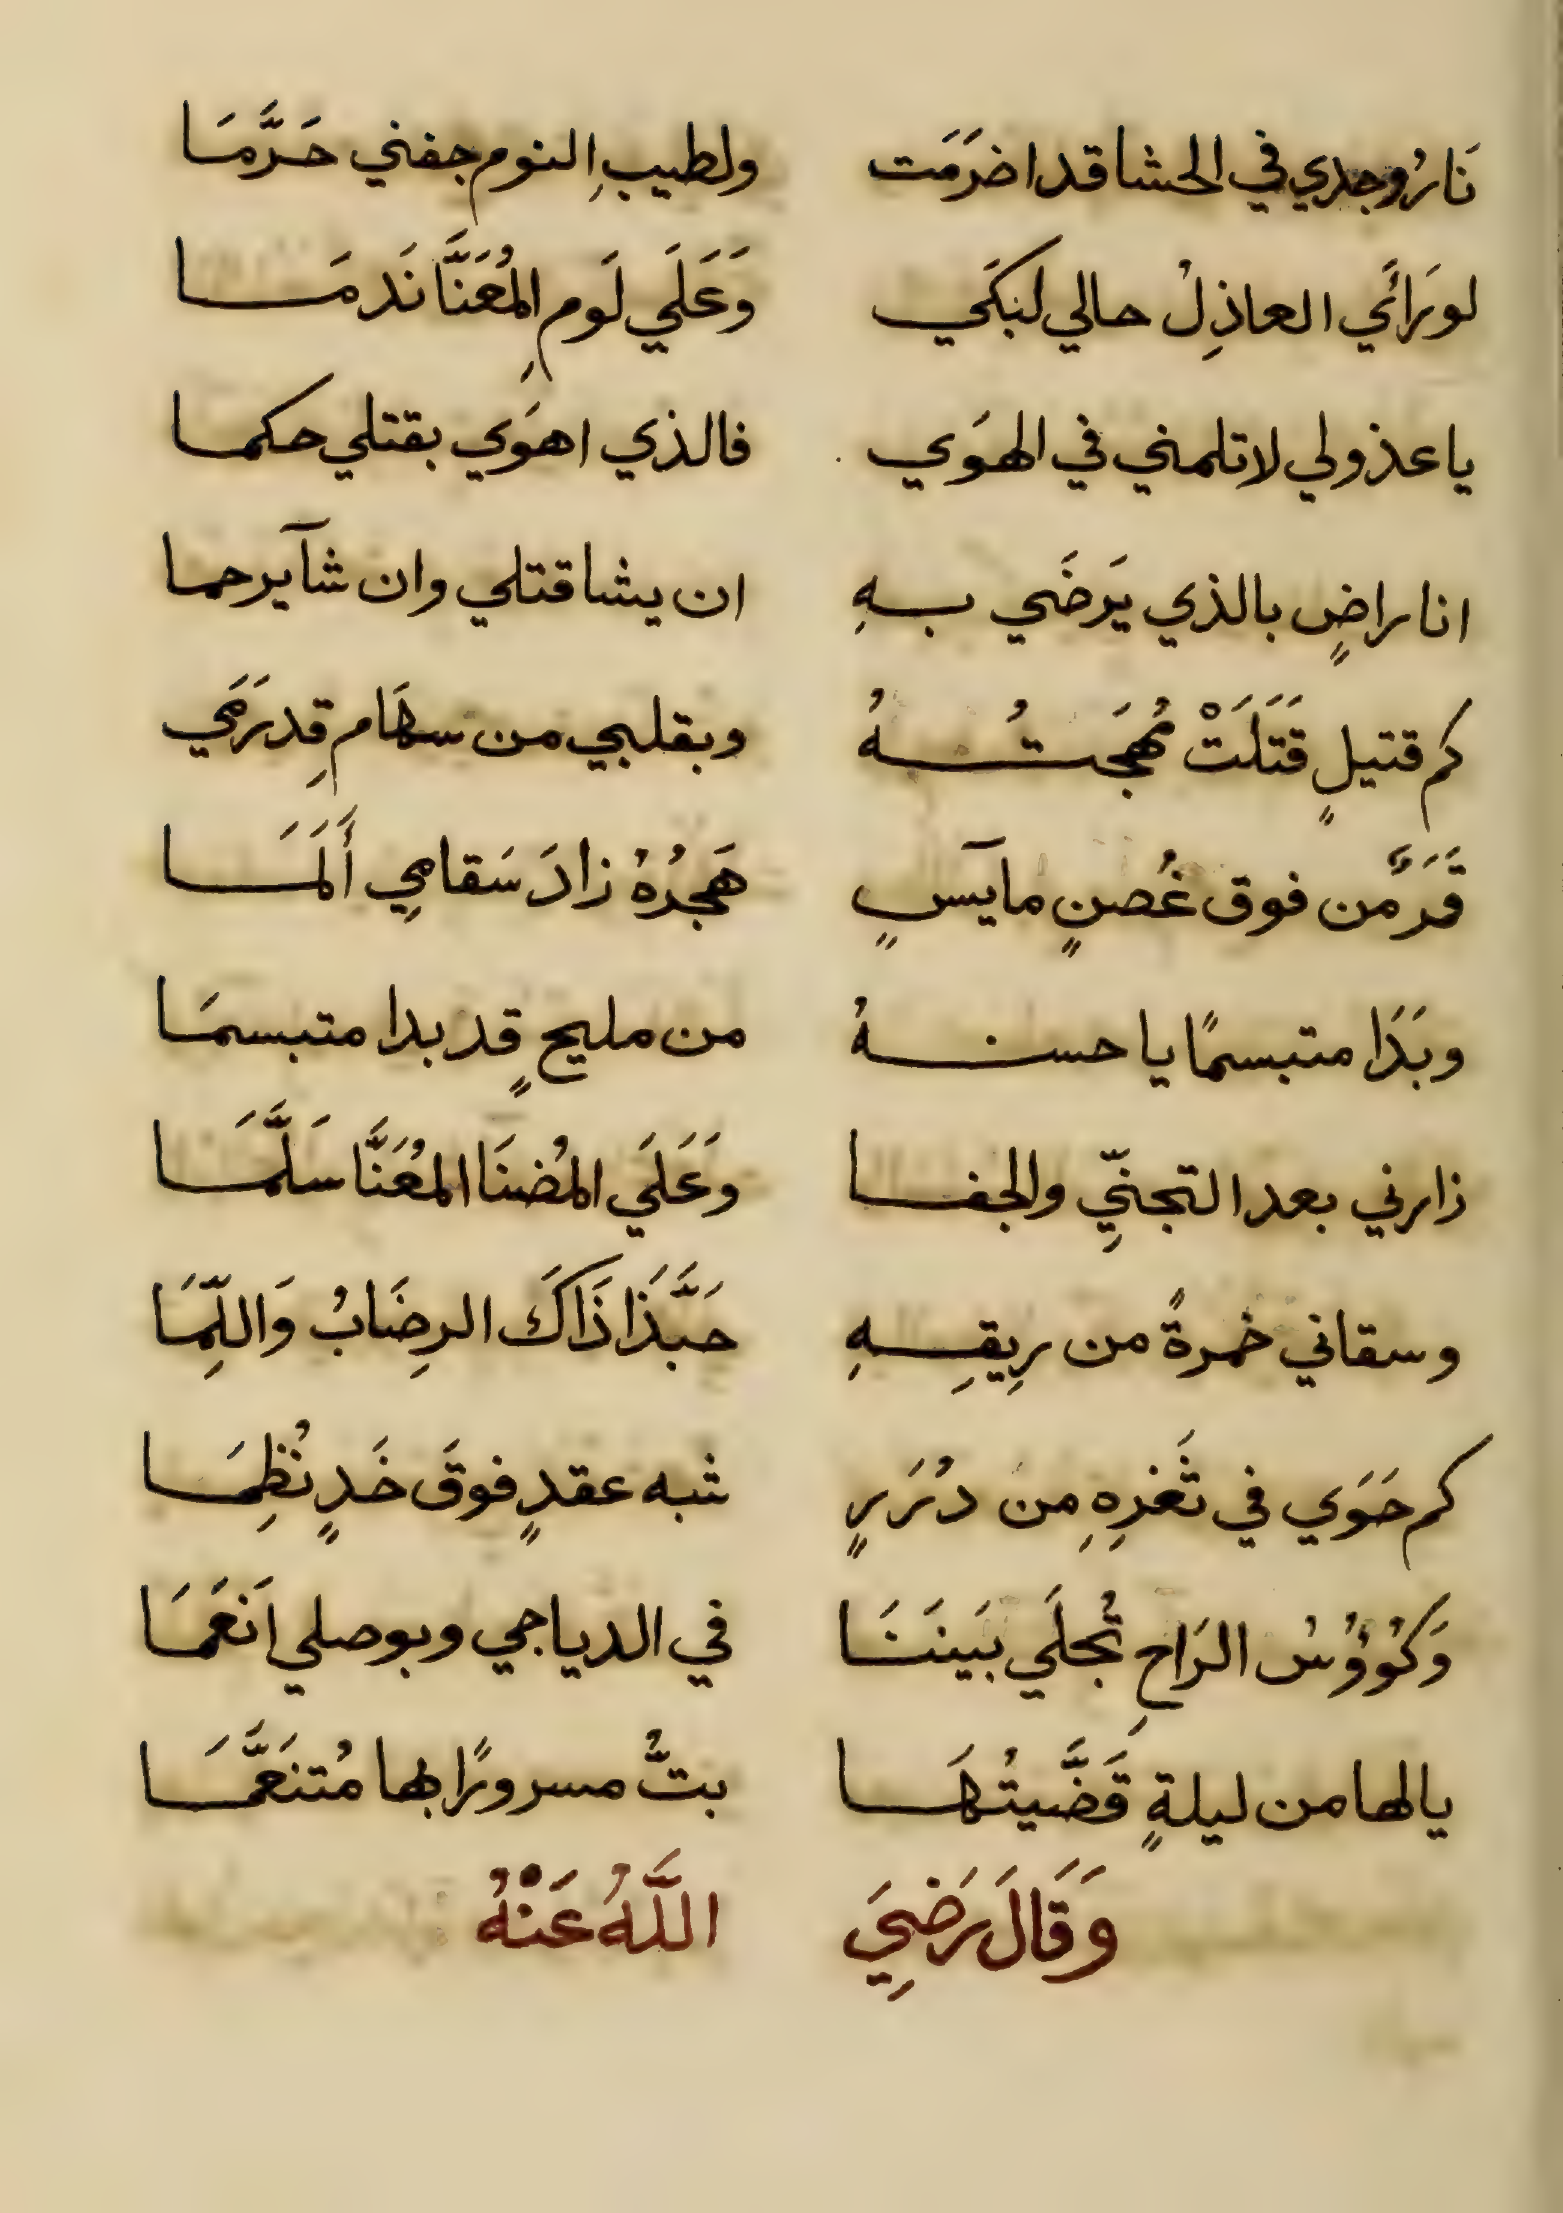 نَارُ وجدي في الحشا قد اضرَمَت ولطيبِ النوم جفني حَرَّمَا
لو رَأَي العاذِلُ حالي لبكَي وَعَلَي لَومِ المُعَنَّا نَدمَا
يا عذولي لا تلمني في الهوَي فالذي اهوَي بقتلي حكما
انا راضٍ بالذي يَرضَي بهِ ان يشا قتلي وان شآ يرحما
كم قتيلٍ قَتَلَتْ مُهجَتُهُ وبقلبي من سهَامِ قد رَمَي
قَمَرٌ من فوق غُصنٍ مآيسٍ هَجرُهُ زادَ سَقامِي أَلَمَا
وبَدَا متبسمًا يا حسنهُ من مليحٍ قد بدا متبسمَا
زارني بعد التجنِّي والجفا وعَلَي المُضنَا المُعَنَّا سَلَّمَا
وسقاني خمرةً من رِيقِهِ حَبَّذَا ذَاكَ الرِضَابُ وَاللِّمَا
كم حَوَي في ثَغرِهِ مِن دُرَرٍ شبه عقدٍ فوقَ خَدٍ نُظِمَا
وَكُؤُوسُ الرَاحِ تُجلَي بَينَنَا في الدياجي وبوصلي اَنعَمَا
يا لها من ليلةٍ قَضَّيتُهَا بتُّ مسرورًا بها مُتنَعَّمَا
وَقَالَ رَضِيَ اللَّهُ عَنْهُ